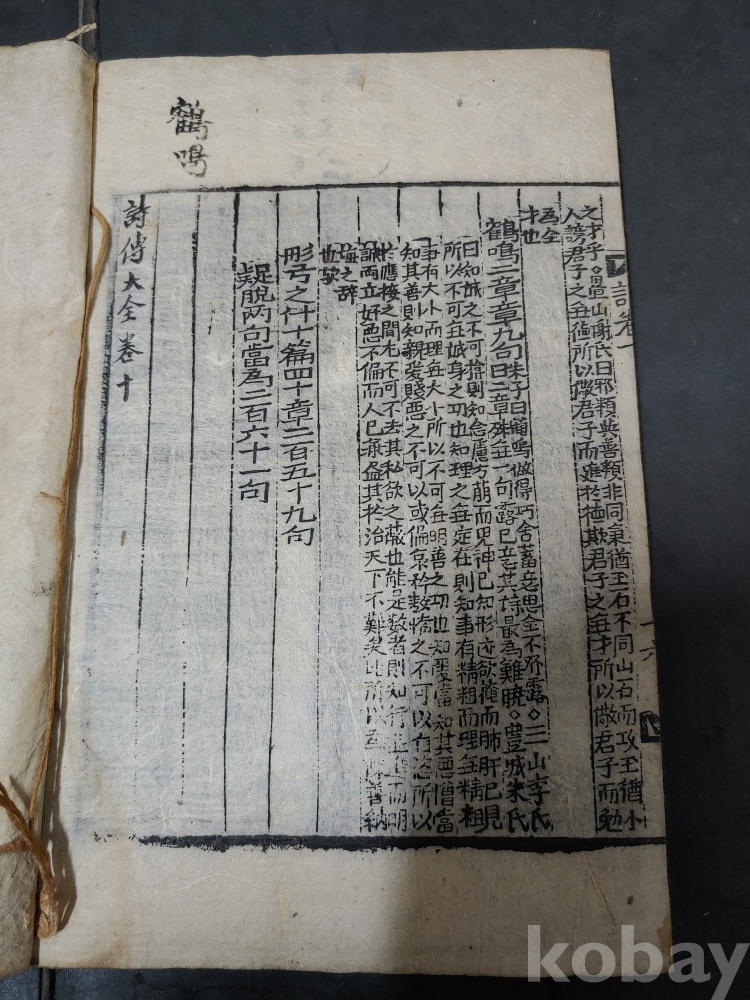 鶴鳴
之才乎○疊山謝氏曰邪類與善類非同氣猶玉石不同山石而攻玉猶小
人謗君子之無德所以儆君子而進於德欺君子之無才所以儆君子而勉
為全
才也
鶴鳴二章章九句朱子曰鶴鳴做得巧含蓄意思全不發露○三山李氏
曰二章殊無一句露已意其詩最為難曉○豐城朱氏
曰知誠之不可揜則知念慮方萌而鬼神已知形迹欲掩而肺肝已見
所以不可無誠身之功也知理之無定在則知事有精粗而理無精粗
事有大小而理無大小所以不可無明善之功也知愛當知其惡憎當
知其善則知親愛賤惡之不可以或偏哀矜敖惰之不可以自恣所以
於應接之間尤不可不去其私欲之蔽也能是數者則知行並進而明
誠兩立好惡不偏而人已兼盡其於治天下不難矣此所以為陳善納
誨之辭
也歟
彤弓之什十篇四十章二百五十九句
疑脫兩句當為二百六十一句
詩傳大全卷十
kobay